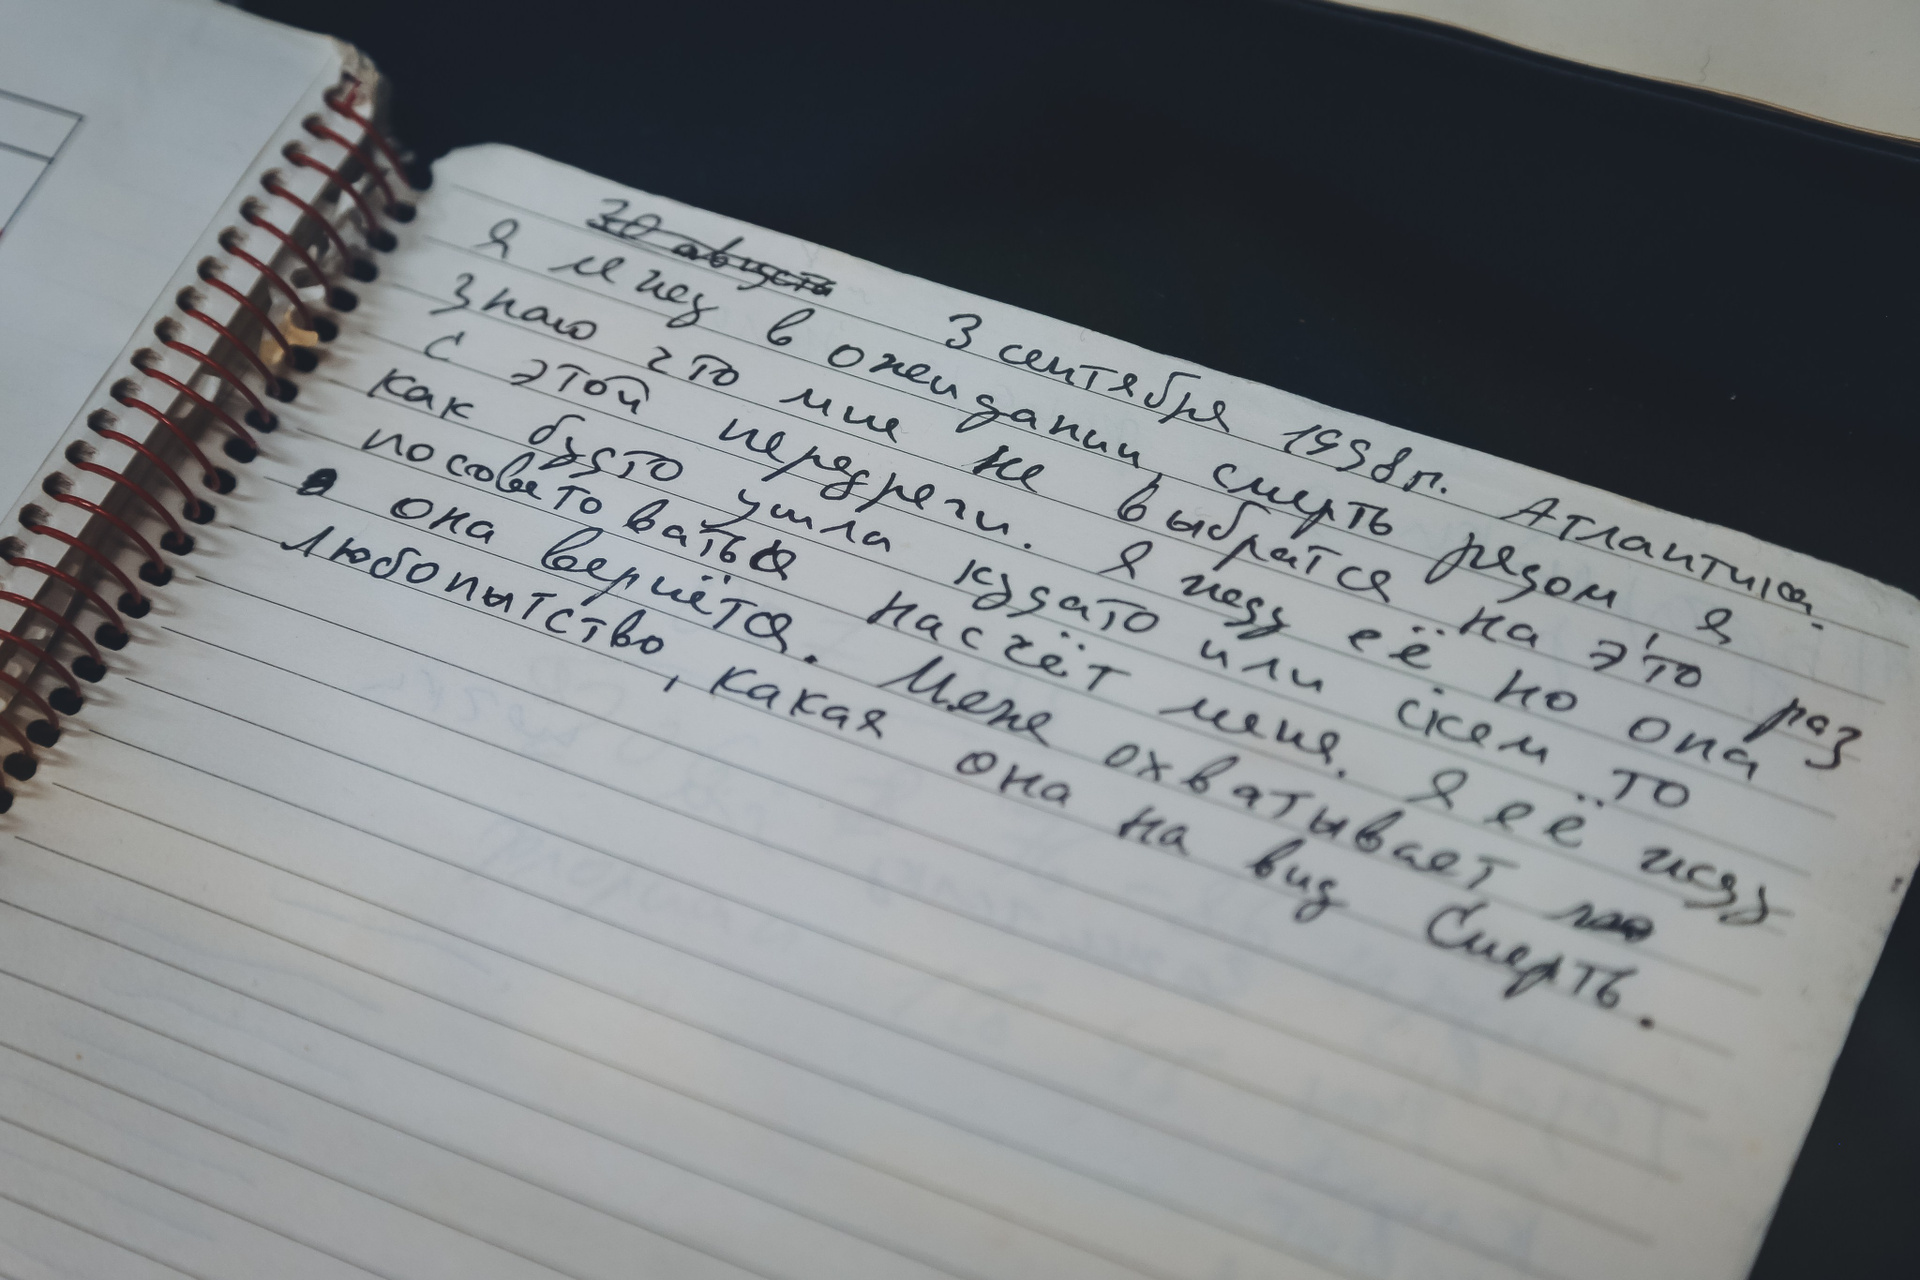 30 августа
3 сентября 1998г. Атлантика.
Я жду в ожидании, смерть рядом я
знаю что мне не выбратся на это раз
с этой передряги. Я жду её но она
как будто ушла кудато или скем то
посоветоваться насчёт меня. Я её жду
а она вернётся. Меня охватывает
любопытство, какая она на вид Смерть.